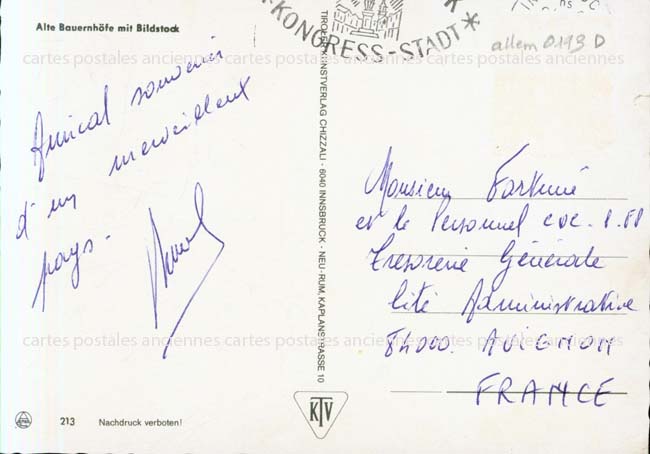 Alte Bauernhöfe mit Bildstock
KONGRESS-STADT*
allem 0193 D
cartes postales anciennes cartes postales anciennes
Amical souvenir
d'un merveilleux
pays.
TIROLER KUNSTVERLAG CHIZZALI · 6040 INNSBRUCK - NEU-RUM, KAPLANSTRASSE 10
Monsieur Fortuné
et le Personnel
Trésorerie Générale
Cité Administrative
84000. AVIGNON
FRANCE
cartes postales anciennes cartes postales anciennes
213 Nachdruck verboten!
KTV